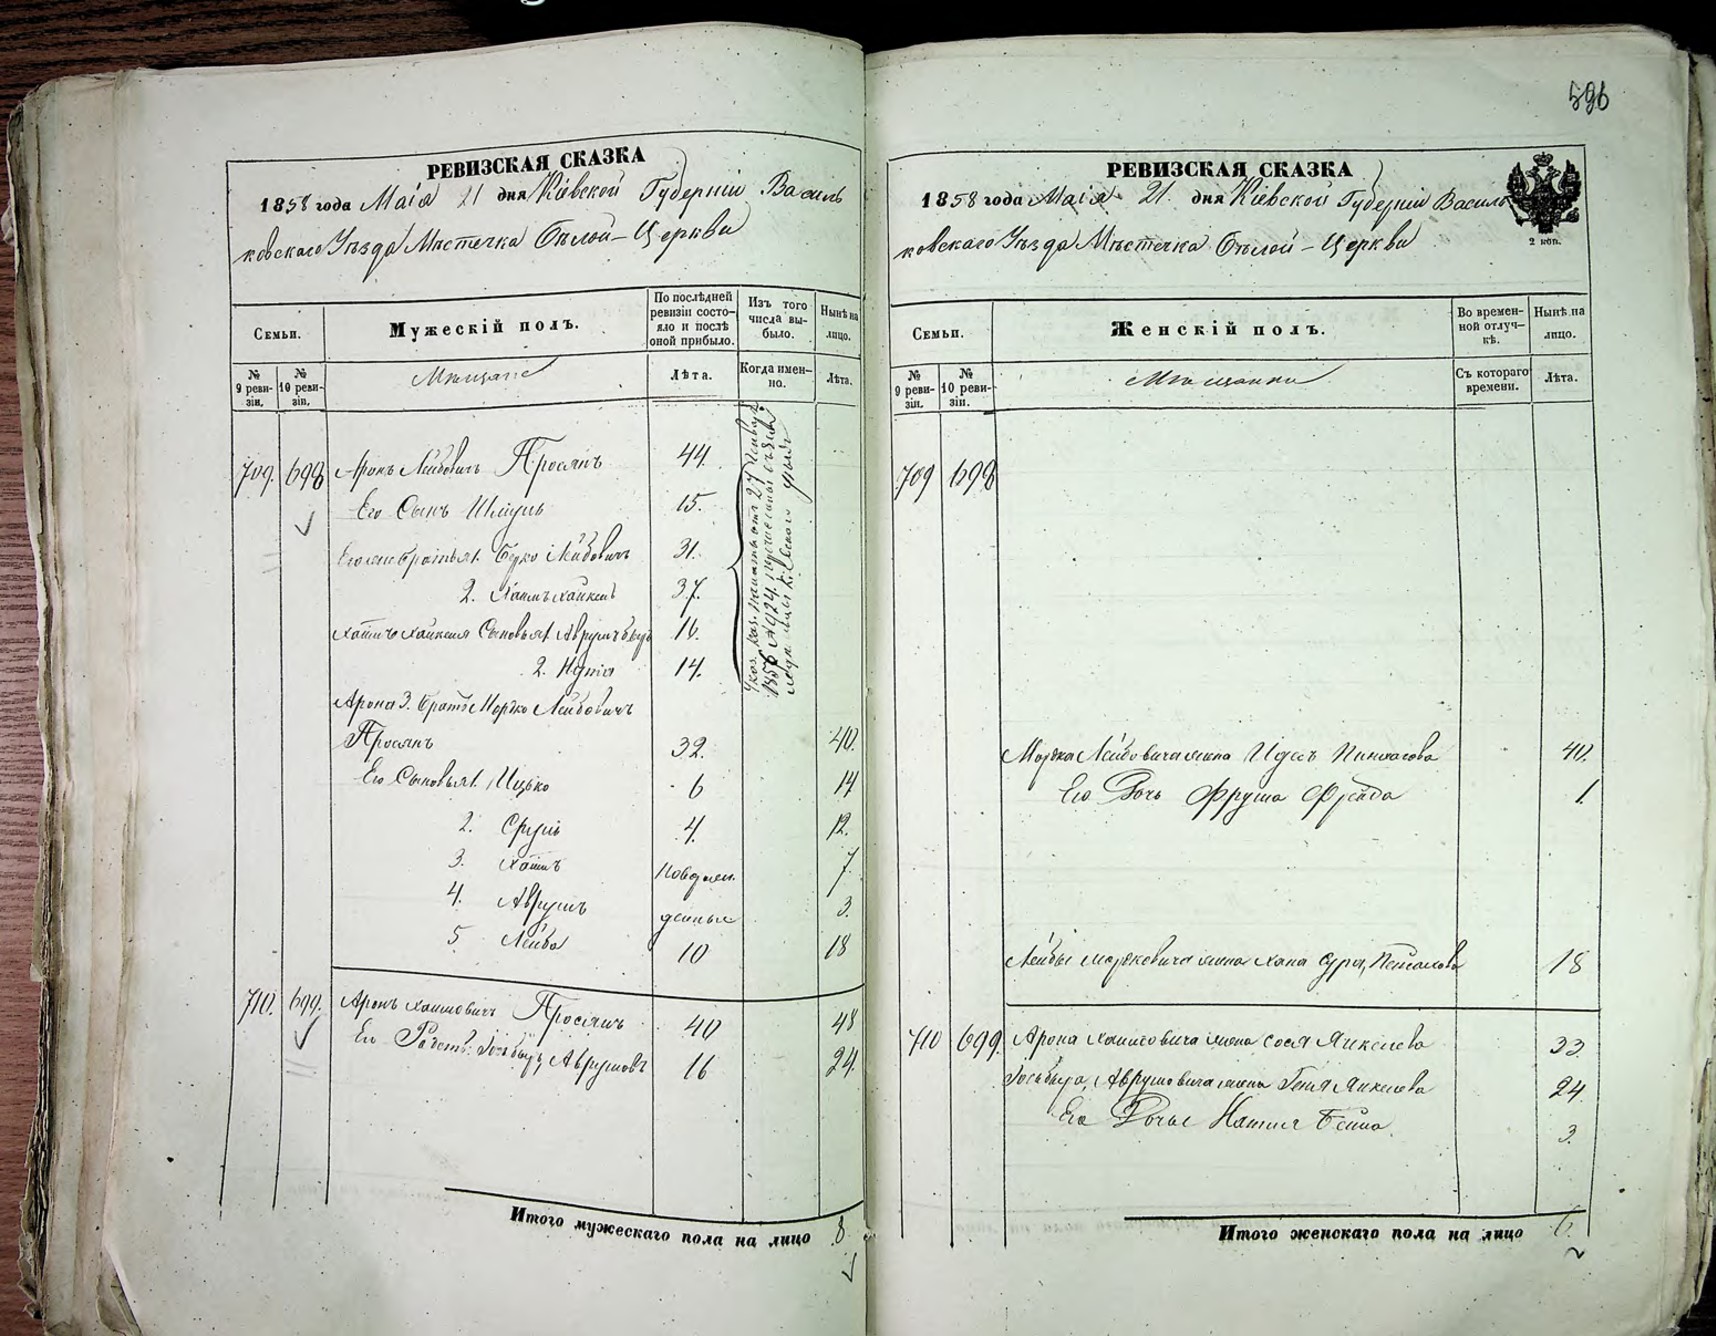 596
РЕВИЗСКАЯ СКАЗКА
1858 года Маія 21 дня Кіевской Губерніи Василь
ковскаго Уѣзда Мѣстечка Бѣлой-Церкви
Семьи.
Мужескій полъ.
По послѣдней ревизіи состо-
яло и послѣ оной прибыло.
Изъ того числа вы-
было.
Нынѣ на лицо.
№ 9 реви-
зіи.
№ 10 реви-
зіи.
Мѣщане
Лѣта.
Когда имен-
но.
Лѣта.
709. 698 Аронъ Лейбовичъ Просянъ 44.
Его Сынъ Шмуль 15.
Его же братья 1. Берко Лейбовичъ 31.
2. Хаимъ Хаикель 37.
Хаимъ Хаикеля Сыновья 1. Аврумъ 16.
2. 14.
Арона 3. братъ Мордко Лейбовичъ
Просянъ 32. 40.
Его Сыновья 1. Ицько 6 14
2. Сруль 4. 12.
3. Хаимъ 7
4. Аврумъ 3.
5. Лейба 10 18
710. 699. Аронъ Хаимовичъ Просянъ 40 48
Его Аврумовъ 16 24.
Итого мужескаго пола на лицо 8
РЕВИЗСКАЯ СКАЗКА
1858 года Маія 21. дня Кіевской Губерніи Василь
ковскаго Уѣзда Мѣстечка Бѣлой-Церкви
2 коп.
Семьи.
Женскій полъ.
Во времен-
ной отлуч-
кѣ.
Нынѣ на лицо.
№ 9 реви-
зіи.
№ 10 реви-
зіи.
Мѣщанки
Съ котораго времени.
Лѣта.
709 698
Мордка Лейбовича жена Идесъ Пинхасова 40.
Его Дочь Фрума Фрейда 1.
Лейбы Мордковича жена Хана Сура 18
710 699. Арона Хаимовича жена Сося Янкелева 33.
Аврумовича жена Геня Янкелева 24
Его Дочь 3.
Итого женскаго пола на лицо 6.